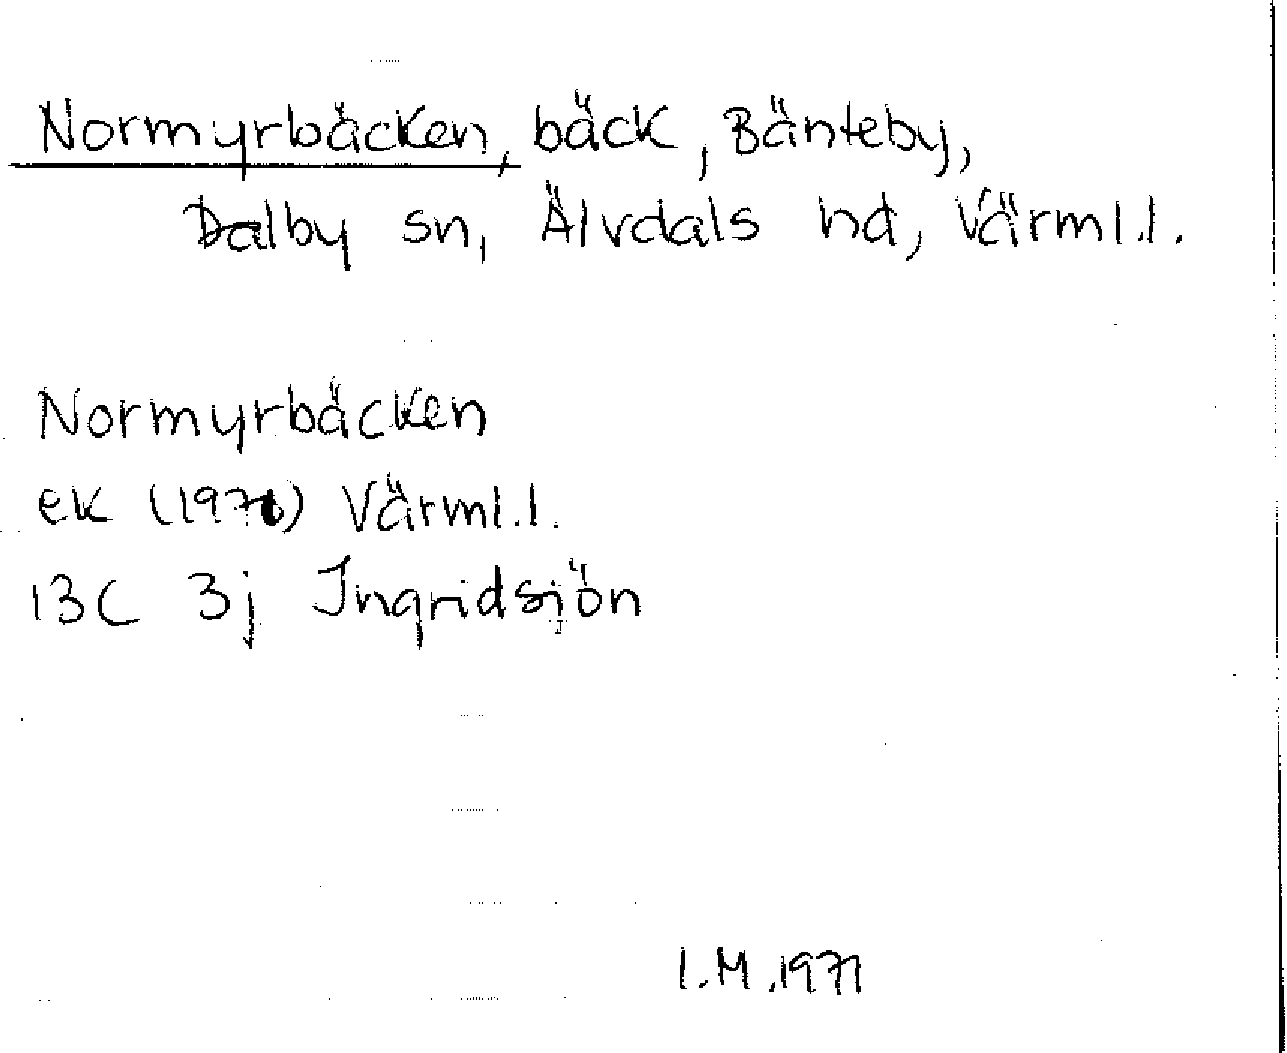 Normyrbäcken, bäck, Bänteby,
Dalby sn, Älvdals hd, Värml.l.
Normyrbäcken
ek (1971) Värml.l.
13C 3j Ingridsjön
I.M.1977